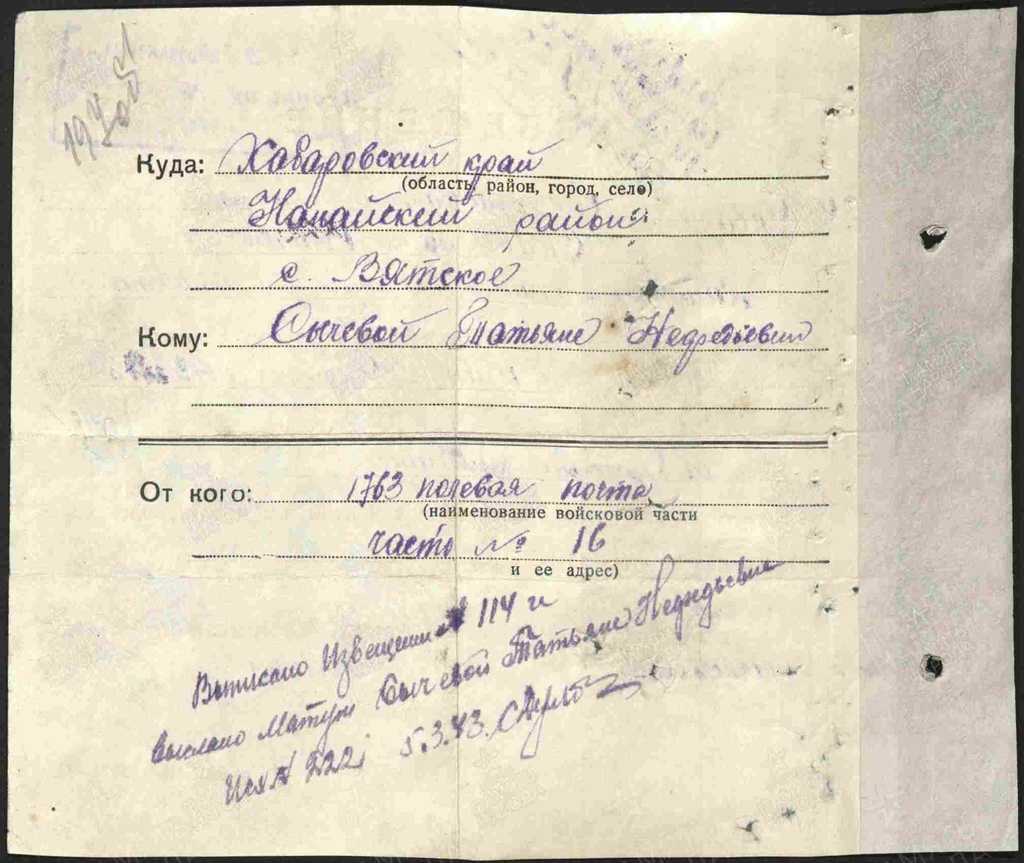 Куда: Хабаровский край
(область, район, город, село)
Нанайский район
с. Вятское
Кому: Сычевой Татьяне
От кого: 1763 полевая почта
(наименование войсковой части
часть № 16
и ее адрес)
Выписано Извещение № 114 и
выслано Матери Сычевой Татьяне
Исх № 222 5.3.43.